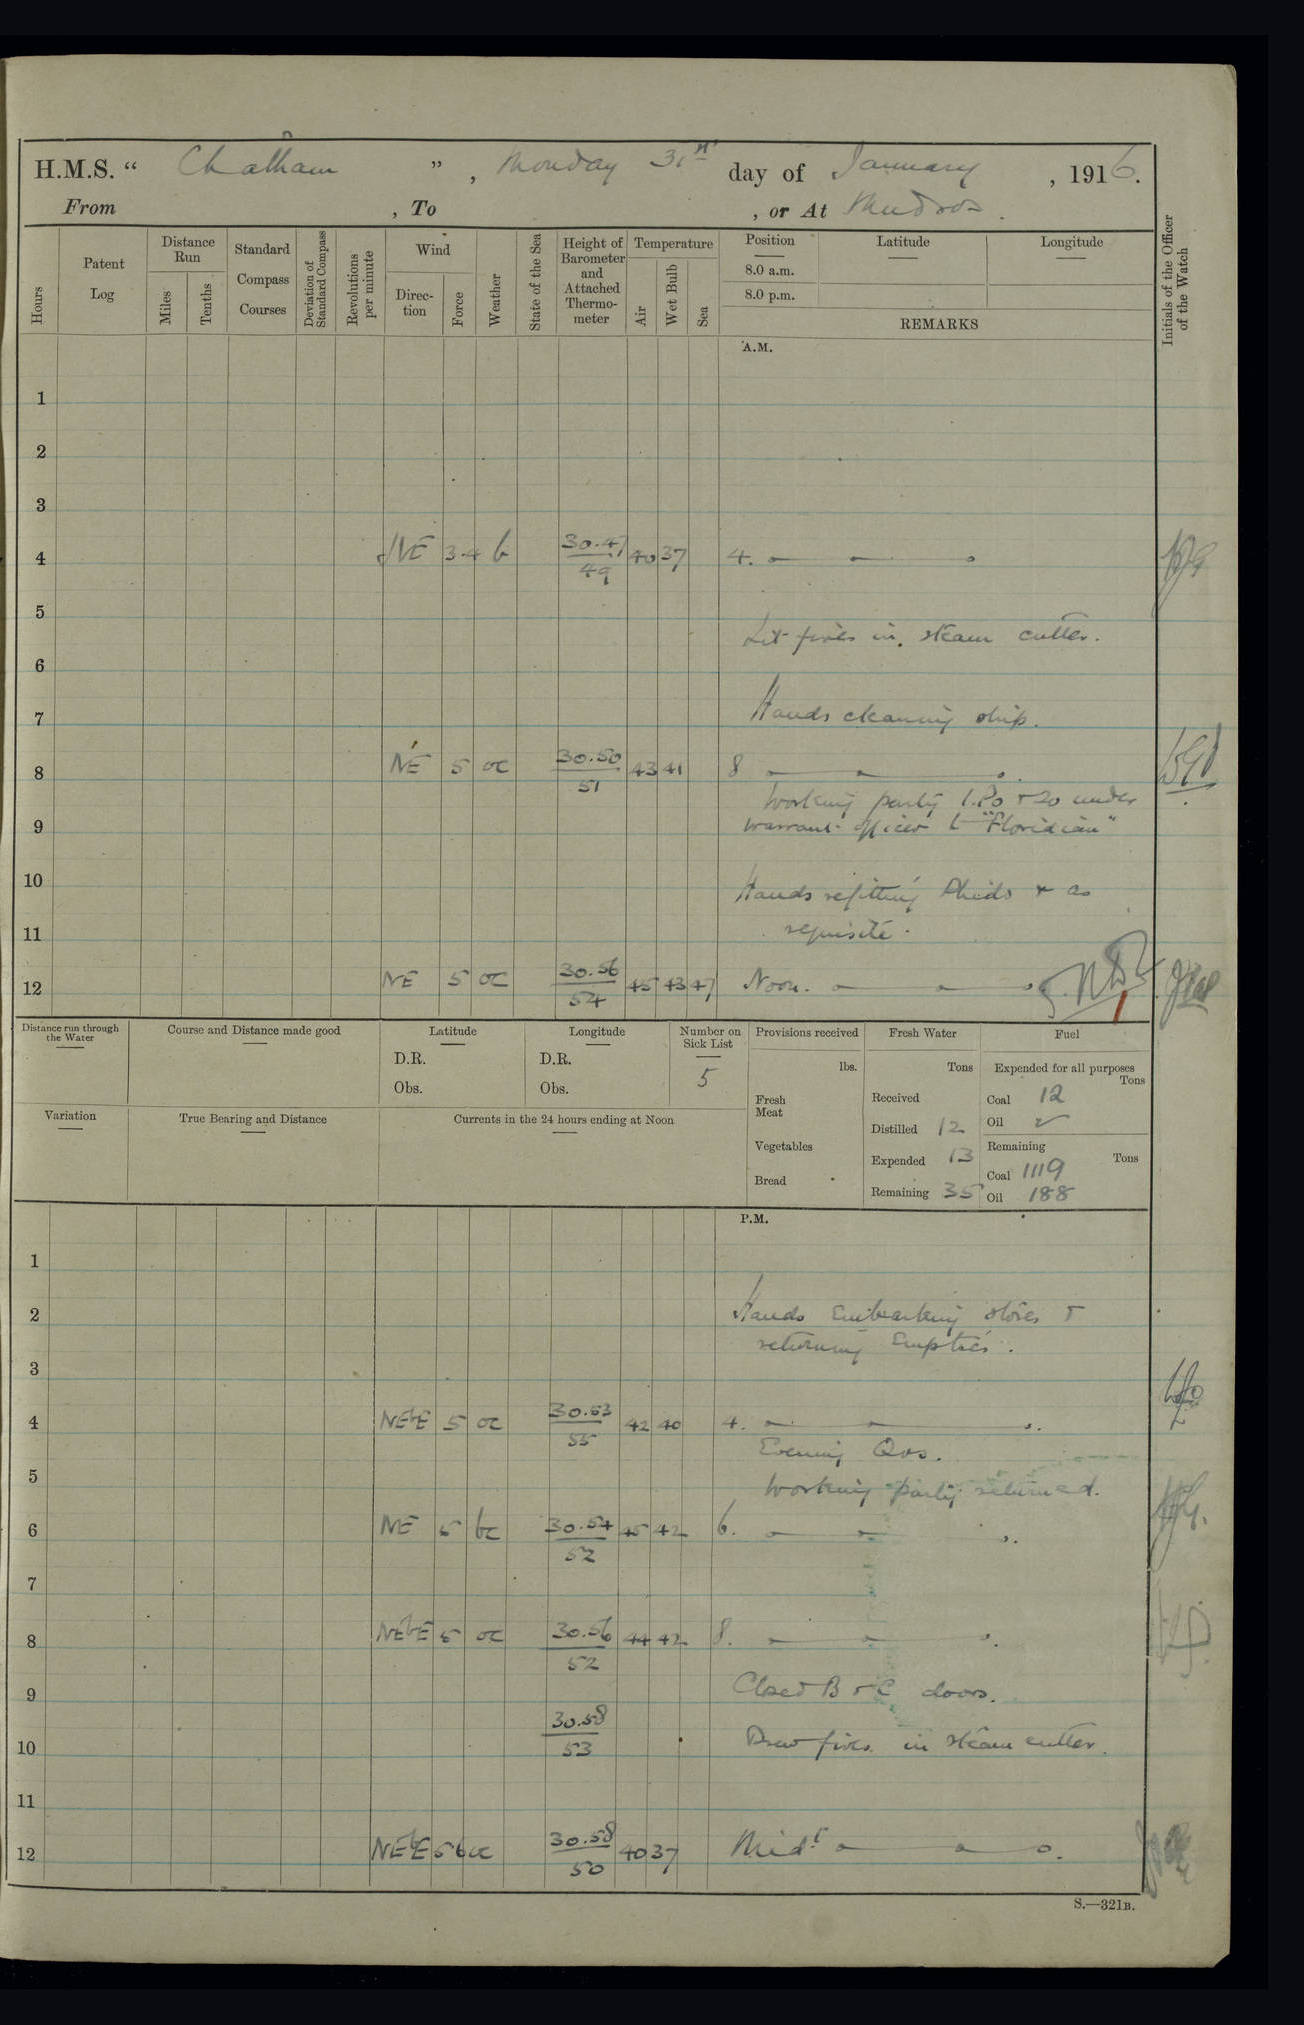 H.M.S. “ Chatham ”, Monday 31st day of January, 1916.
From , To , or At Mudros.
Hours
Patent Log
Distance Run
Miles
Tenths
Standard Compass Courses
Deviation of Standard Compass
Revolutions per minute
Wind
Direction
Force
Weather
State of the Sea
Height of Barometer and Attached Thermometer
Temperature
Air
Wet Bulb
Sea
Position
8.0 a.m.
8.0 p.m.
Latitude
Longitude
REMARKS
Initials of the Officer of the Watch
A.M.
1
2
3
4 NE 3.4 b 30.47 49 40 37 4.
5
Lit fires in steam cutter.
6
Hands cleaning ship.
7
8 NE 5 oc 30.50 51 43 41 8
Working party 1.Po + 20 under
9 warrant officer to "Floridian"
10 Hands refitting & as
11 requisite.
12 NE 5 oc 30.56 54 45 43 47 Noon.
Distance run through the Water
Course and Distance made good
Latitude
D.R.
Obs.
Longitude
D.R.
Obs.
Number on Sick List
5
Variation
True Bearing and Distance
Currents in the 24 hours ending at Noon
Provisions received
lbs.
Fresh Meat
Vegetables
Bread
Fresh Water
Tons
Received
Distilled 12
Expended 13
Remaining 35
Fuel
Expended for all purposes
Tons
Coal 12
Oil
Remaining
Tons
Coal 1119
Oil 188
P.M.
1
2 Hands Embarking stores &
returning Empties.
3
4 NEbE 5 oc 30.53 55 42 40 4.
Evening Qrs.
5 Working party returned.
6 NE 5 bc 30.54 52 45 42 6.
7
8 NEbE 5 oc 30.56 52 44 42 8.
9 Closed B & C doors.
10 30.58 53 Drew fires in steam cutter.
11
12 NEbE 5 bc 30.58 50 40 37 Midt.
S.—321B.